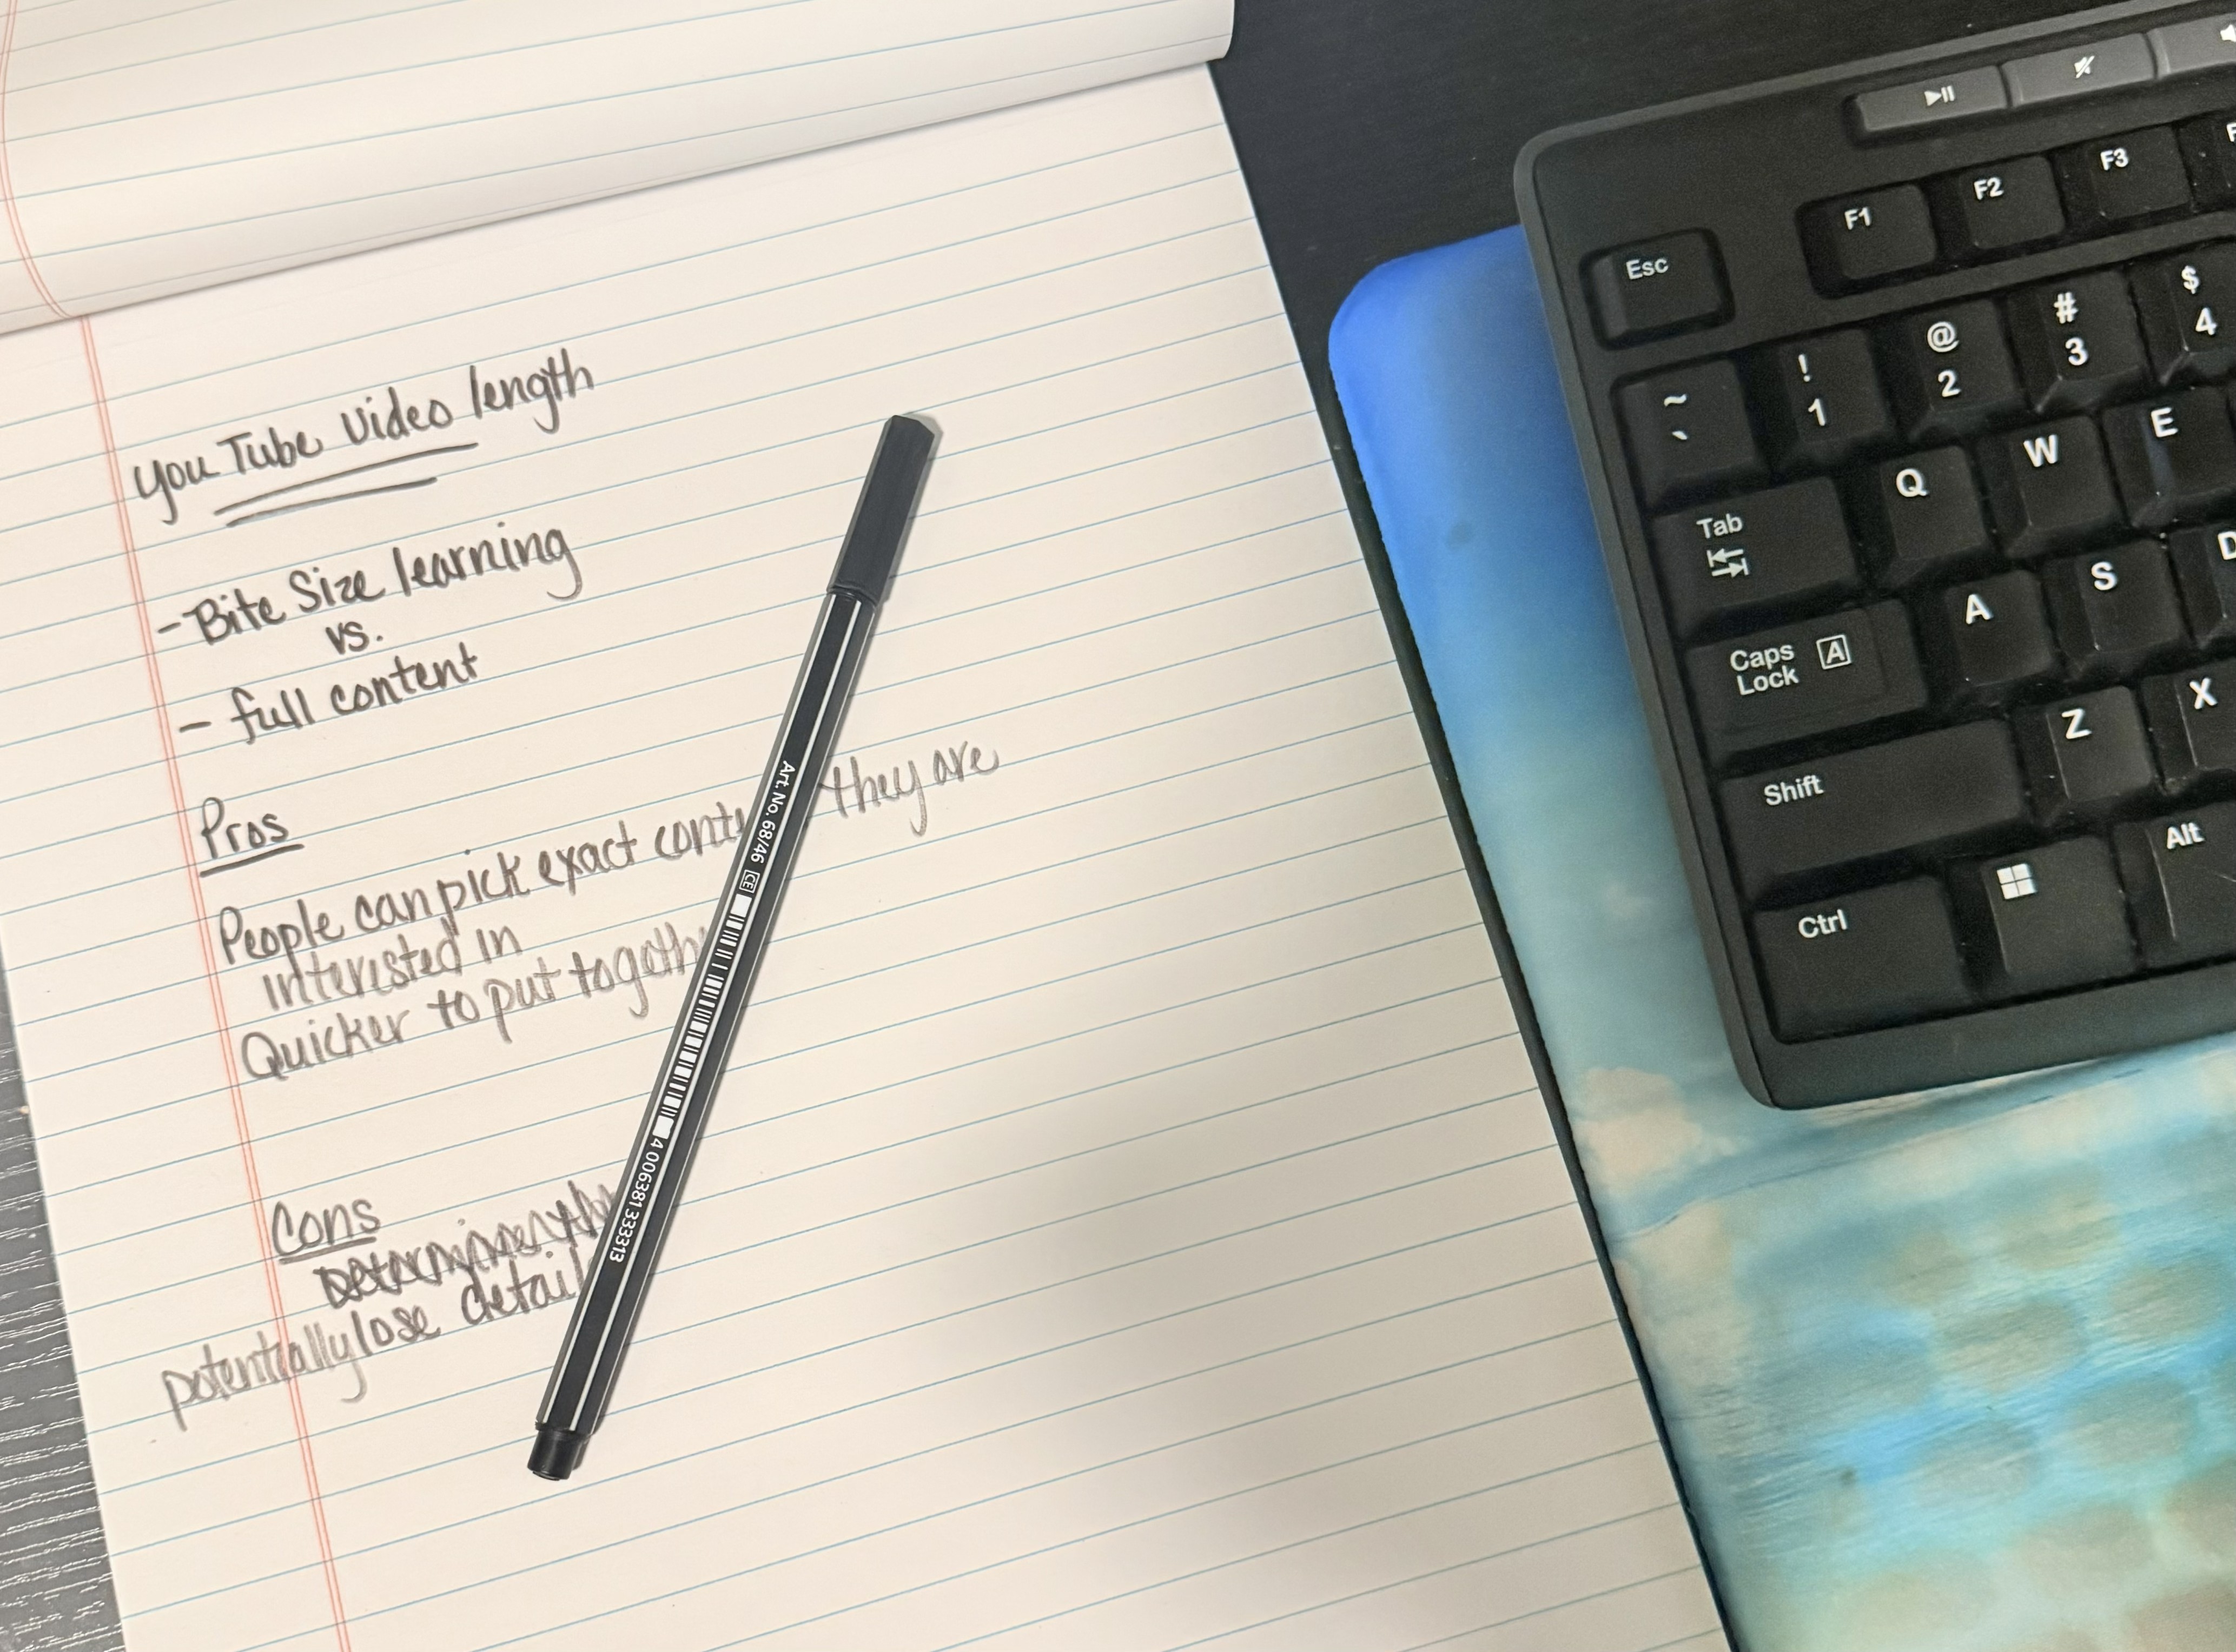 you Tube video length
- Bite Size learning
vs.
- full content
Pros
People can pick exact conte they are
interested in
Quicker to put togeth
Cons
potentially lose detail
Art. No. 68/46 CE
4 006381 333313
Esc
F1
F2
F3
~ `
! 1
@ 2
# 3
$ 4
Tab
Q
W
E
Caps Lock A
A
S
D
Shift
Z
X
Ctrl
Alt